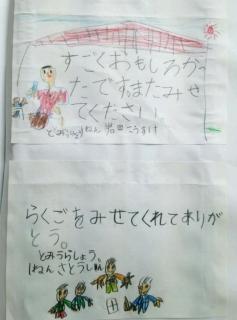 すごくおもしろかっ
たです。またみせ
てください
とみうら1ねん 岩田こうすけ
らくごをみせてくれてありが
とう。
とみうらしょう。
1ねん さとうしゅん